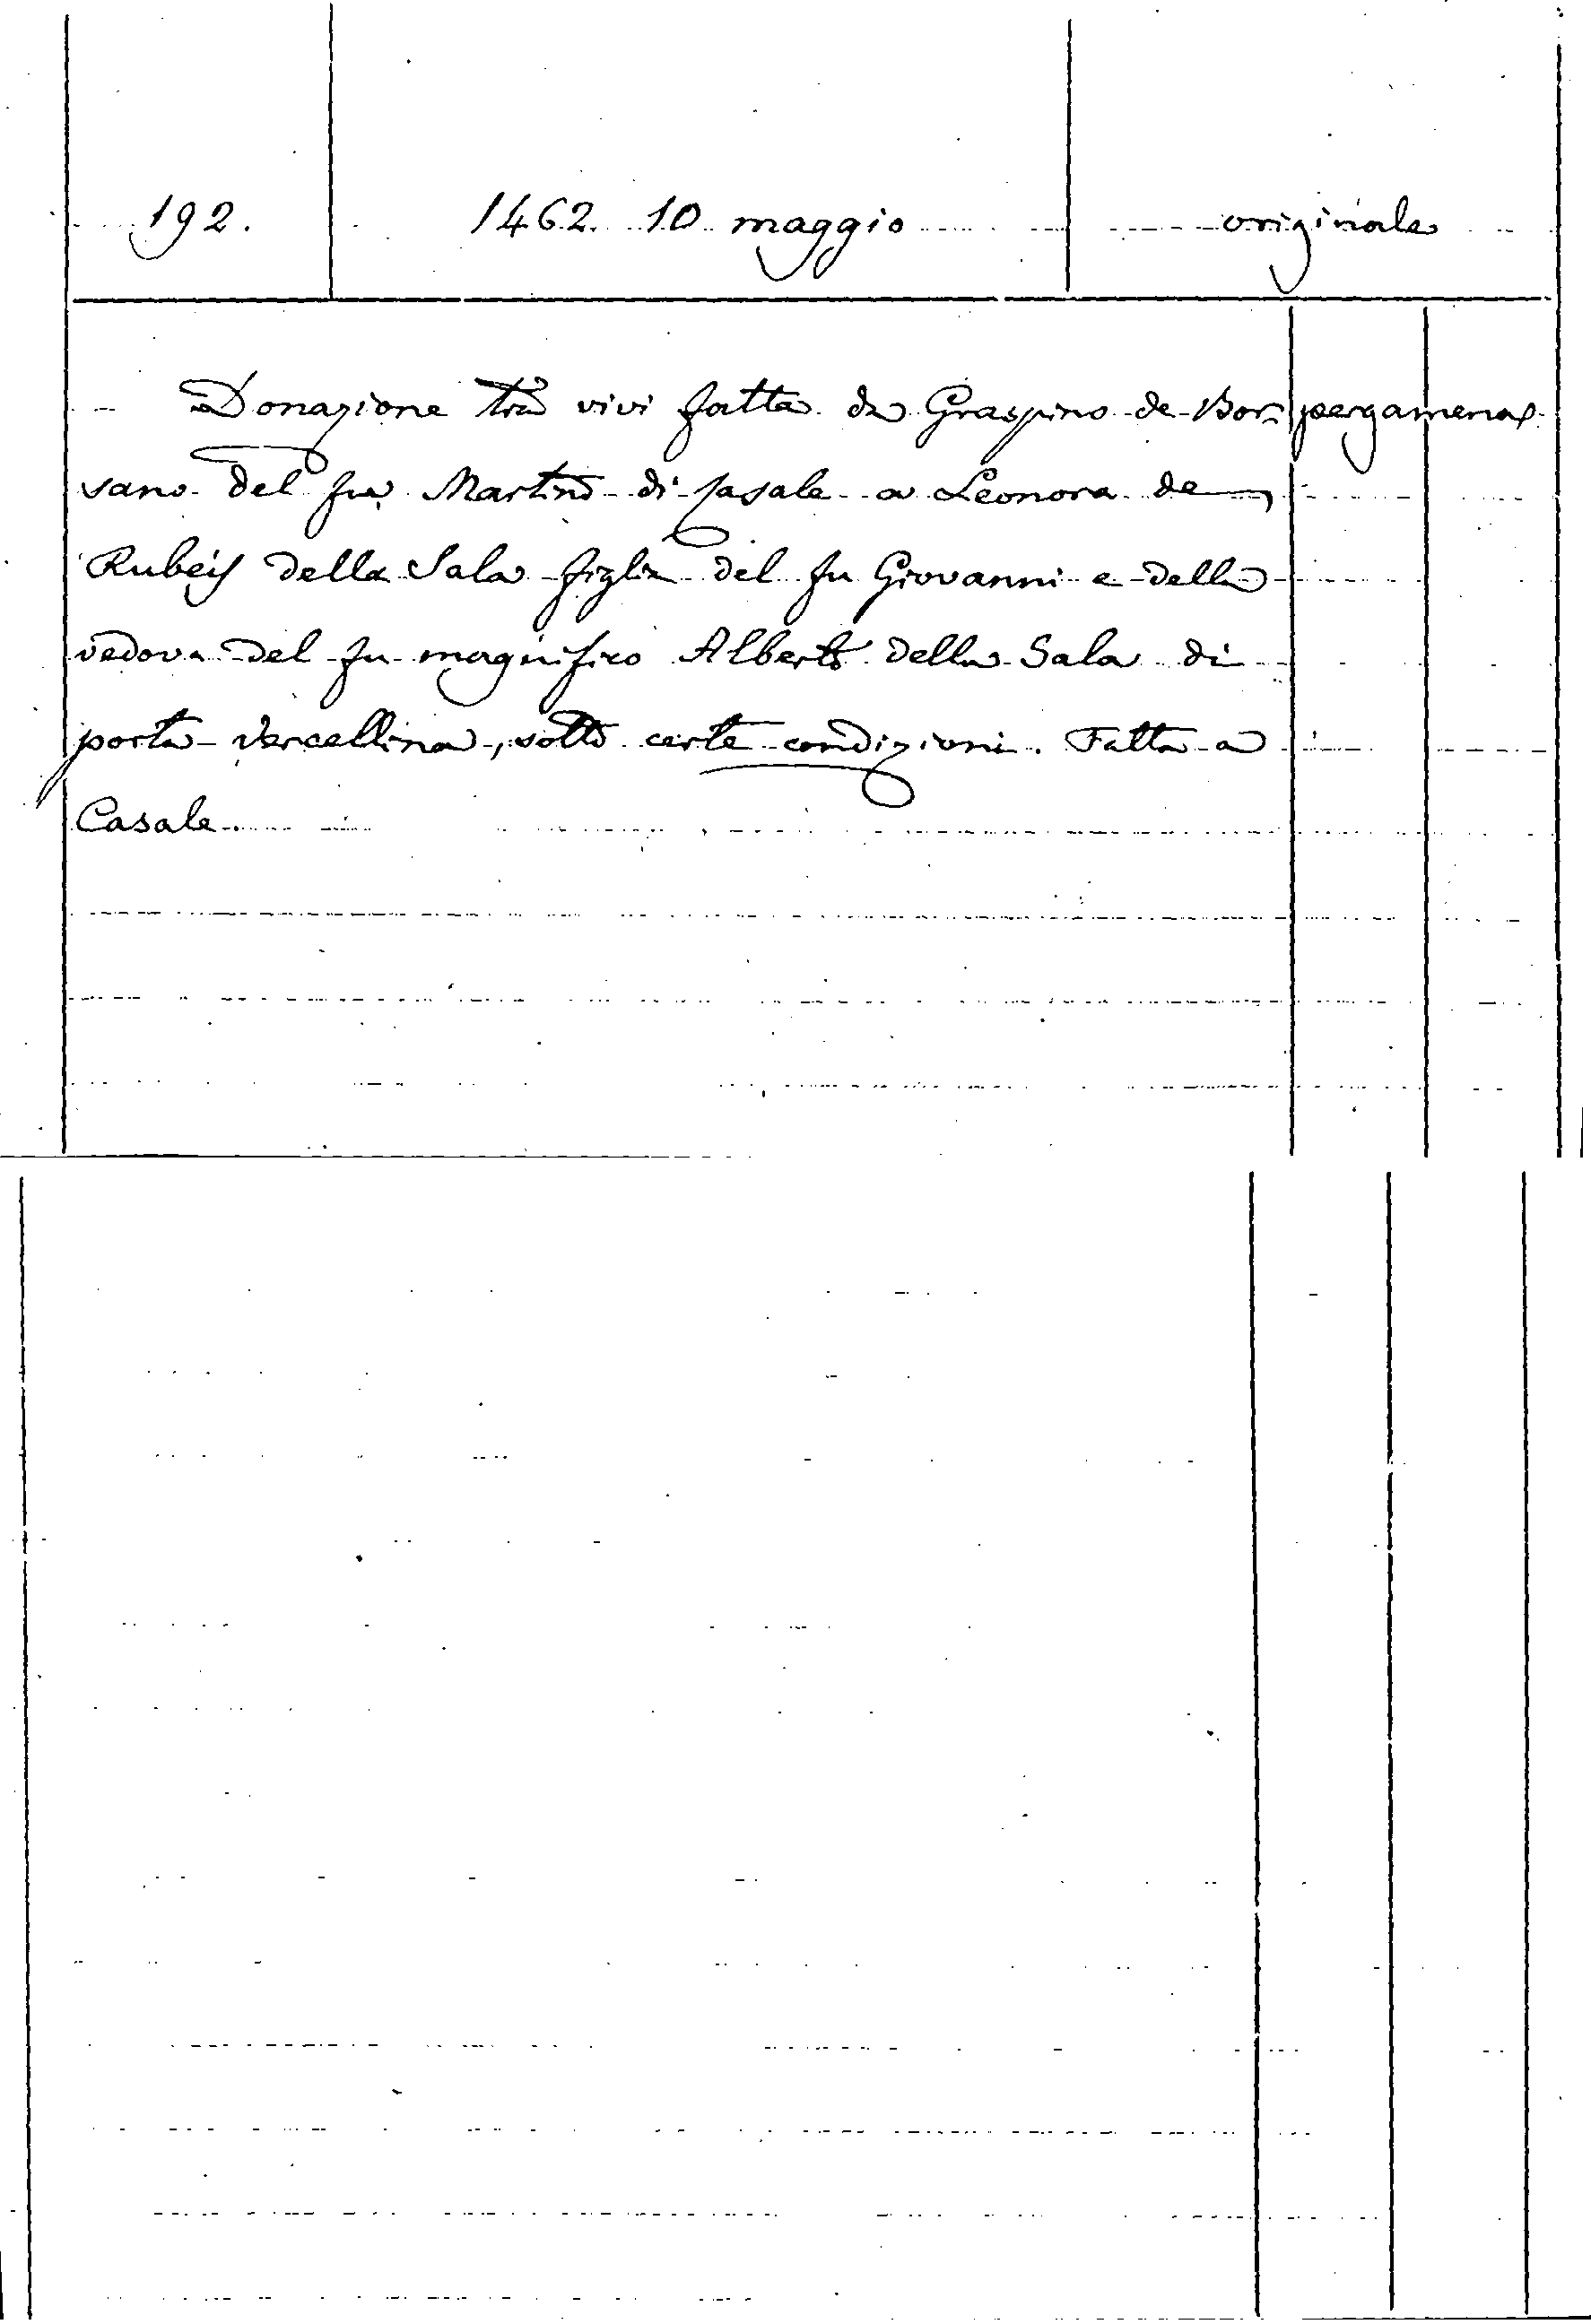 192. 1462. 10 maggio originale
Donazione tra vivi fatta da Graspino de Bor= pergamena
sano del fu Martino di Casale a Leonora de
Rubeis della Sala figlia del fu Giovanni e della
vedova del fu magnifico Alberto della Sala di
porta Vercellina, sotto certe condizioni. Fatta a
Casale.